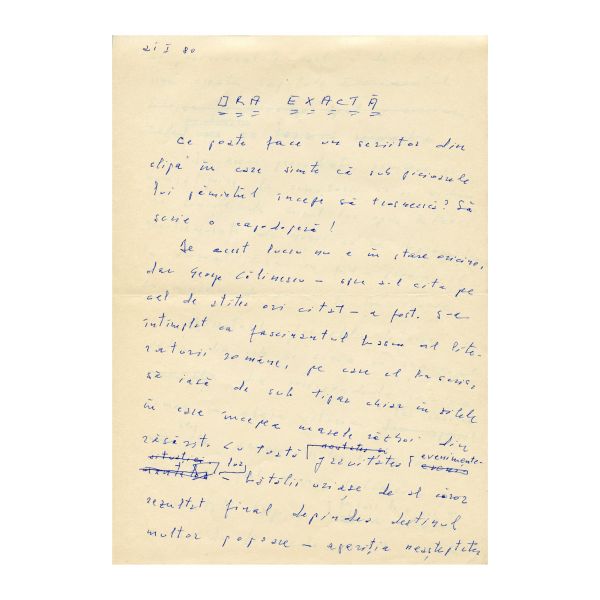 21 I 80
ORA EXACTĂ
Ce poate face un scriitor din
clipa în care simte că sub picioarele
lui pămîntul începe să trosnească? Să
scrie o capodoperă!
De acest lucru nu e în stare oricine,
dar George Călinescu – spre a-l cita pe
cel de atîtea ori citat – a fost. S-a
întîmplat ca fascinantul basm al lite-
raturii române, pe care el îl scria,
să iasă de sub tipar chiar în zilele
în care începea marele război din
răsărit. Cu toată gravitatea evenimente-
lor – bătălii uriașe de al căror
rezultat final depindea destinul
multor popoare – apariția neașteptatei